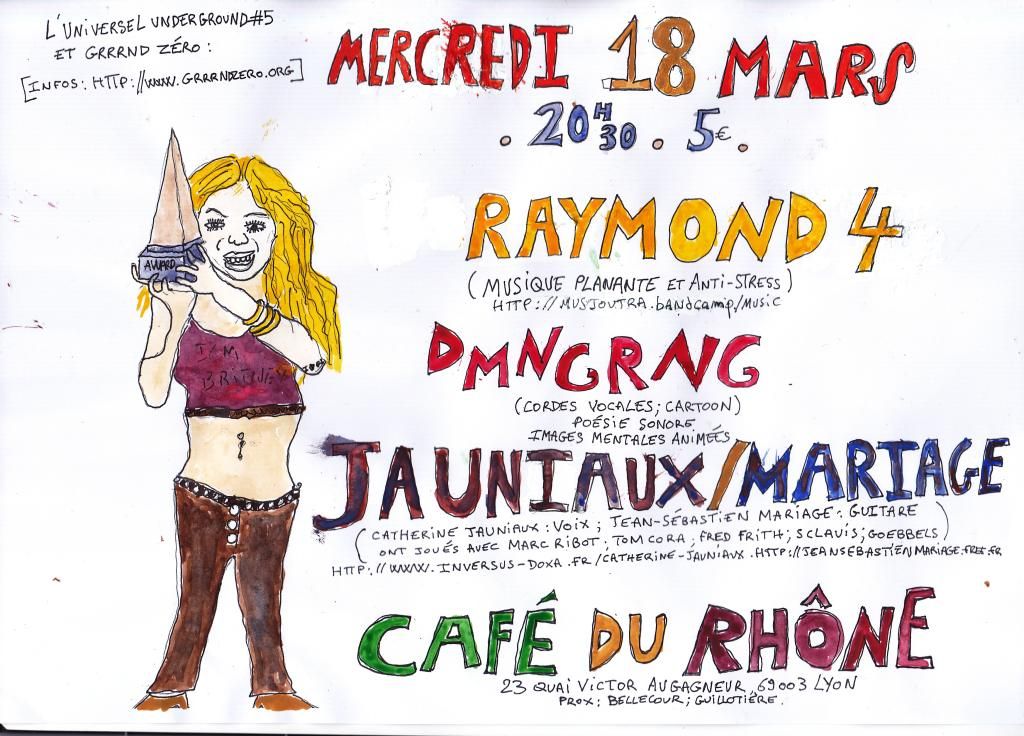 L'UNIVERSEL UNDERGROUND#5
ET GRRRND ZÉRO :
[INFOS: HTTP://WWW.GRRRNDZERO.ORG]
MERCREDI 18 MARS
. 20H30 . 5€ .
RAYMOND 4
(MUSIQUE PLANANTE ET ANTI-STRESS)
HTTP://MUSJOUTRA.bandcamp/MUSIC
DMNGRNG
(CORDES VOCALES; CARTOON)
POÉSIE SONORE
IMAGES MENTALES ANIMÉES
JAUNIAUX/MARIAGE
(CATHERINE JAUNIAUX: VOIX; JEAN-SÉBASTIEN MARIAGE: GUITARE
ONT JOUÉS AVEC MARC RIBOT; TOM CORA; FRED FRITH; SCLAVIS; GOEBBELS)
HTTP://WWW.INVERSUS-DOXA.FR/CATHERINE-JAUNIAUX.HTTP://JEANSEBASTIENMARIAGE.FREE.FR
CAFÉ DU RHÔNE
23 QUAI VICTOR AUGAGNEUR, 69003 LYON
PROX: BELLECOUR; GUILLOTIÈRE.
AWARD
I'M
BRITNEY